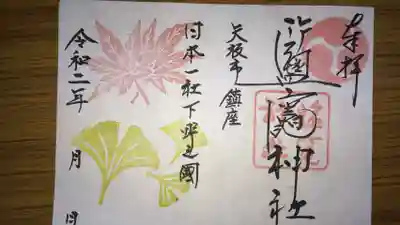 奉拝
神社
矢板市鎮座
日本一社下野之國
令和二年 月 日